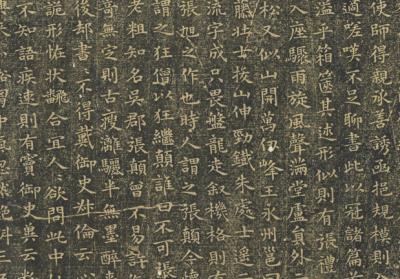 使師得親承善誘函挹規模則
適嗟嘆不足聊書此以冠諸篇
溢乎箱篋其述形似則有張禮
入座驟雨旋風聲滿堂盧員外
松又似山開萬仞峰王永州邕曰
藤壯士拔山伸勁鐵朱處士遙云
流字成只畏盤龍走叙機格則有
張旭之作也時人謂之張顛今懷
謂之狂僧以狂繼顛誰曰不可張
老粗知名吳郡張顛曾不易許
奇無定則古瘦漓驪半無墨醉
後却書書不得戴御史叔倫云
詭形怪狀翻合宜人人欲問此中
不知語疾速則有竇御史冀云